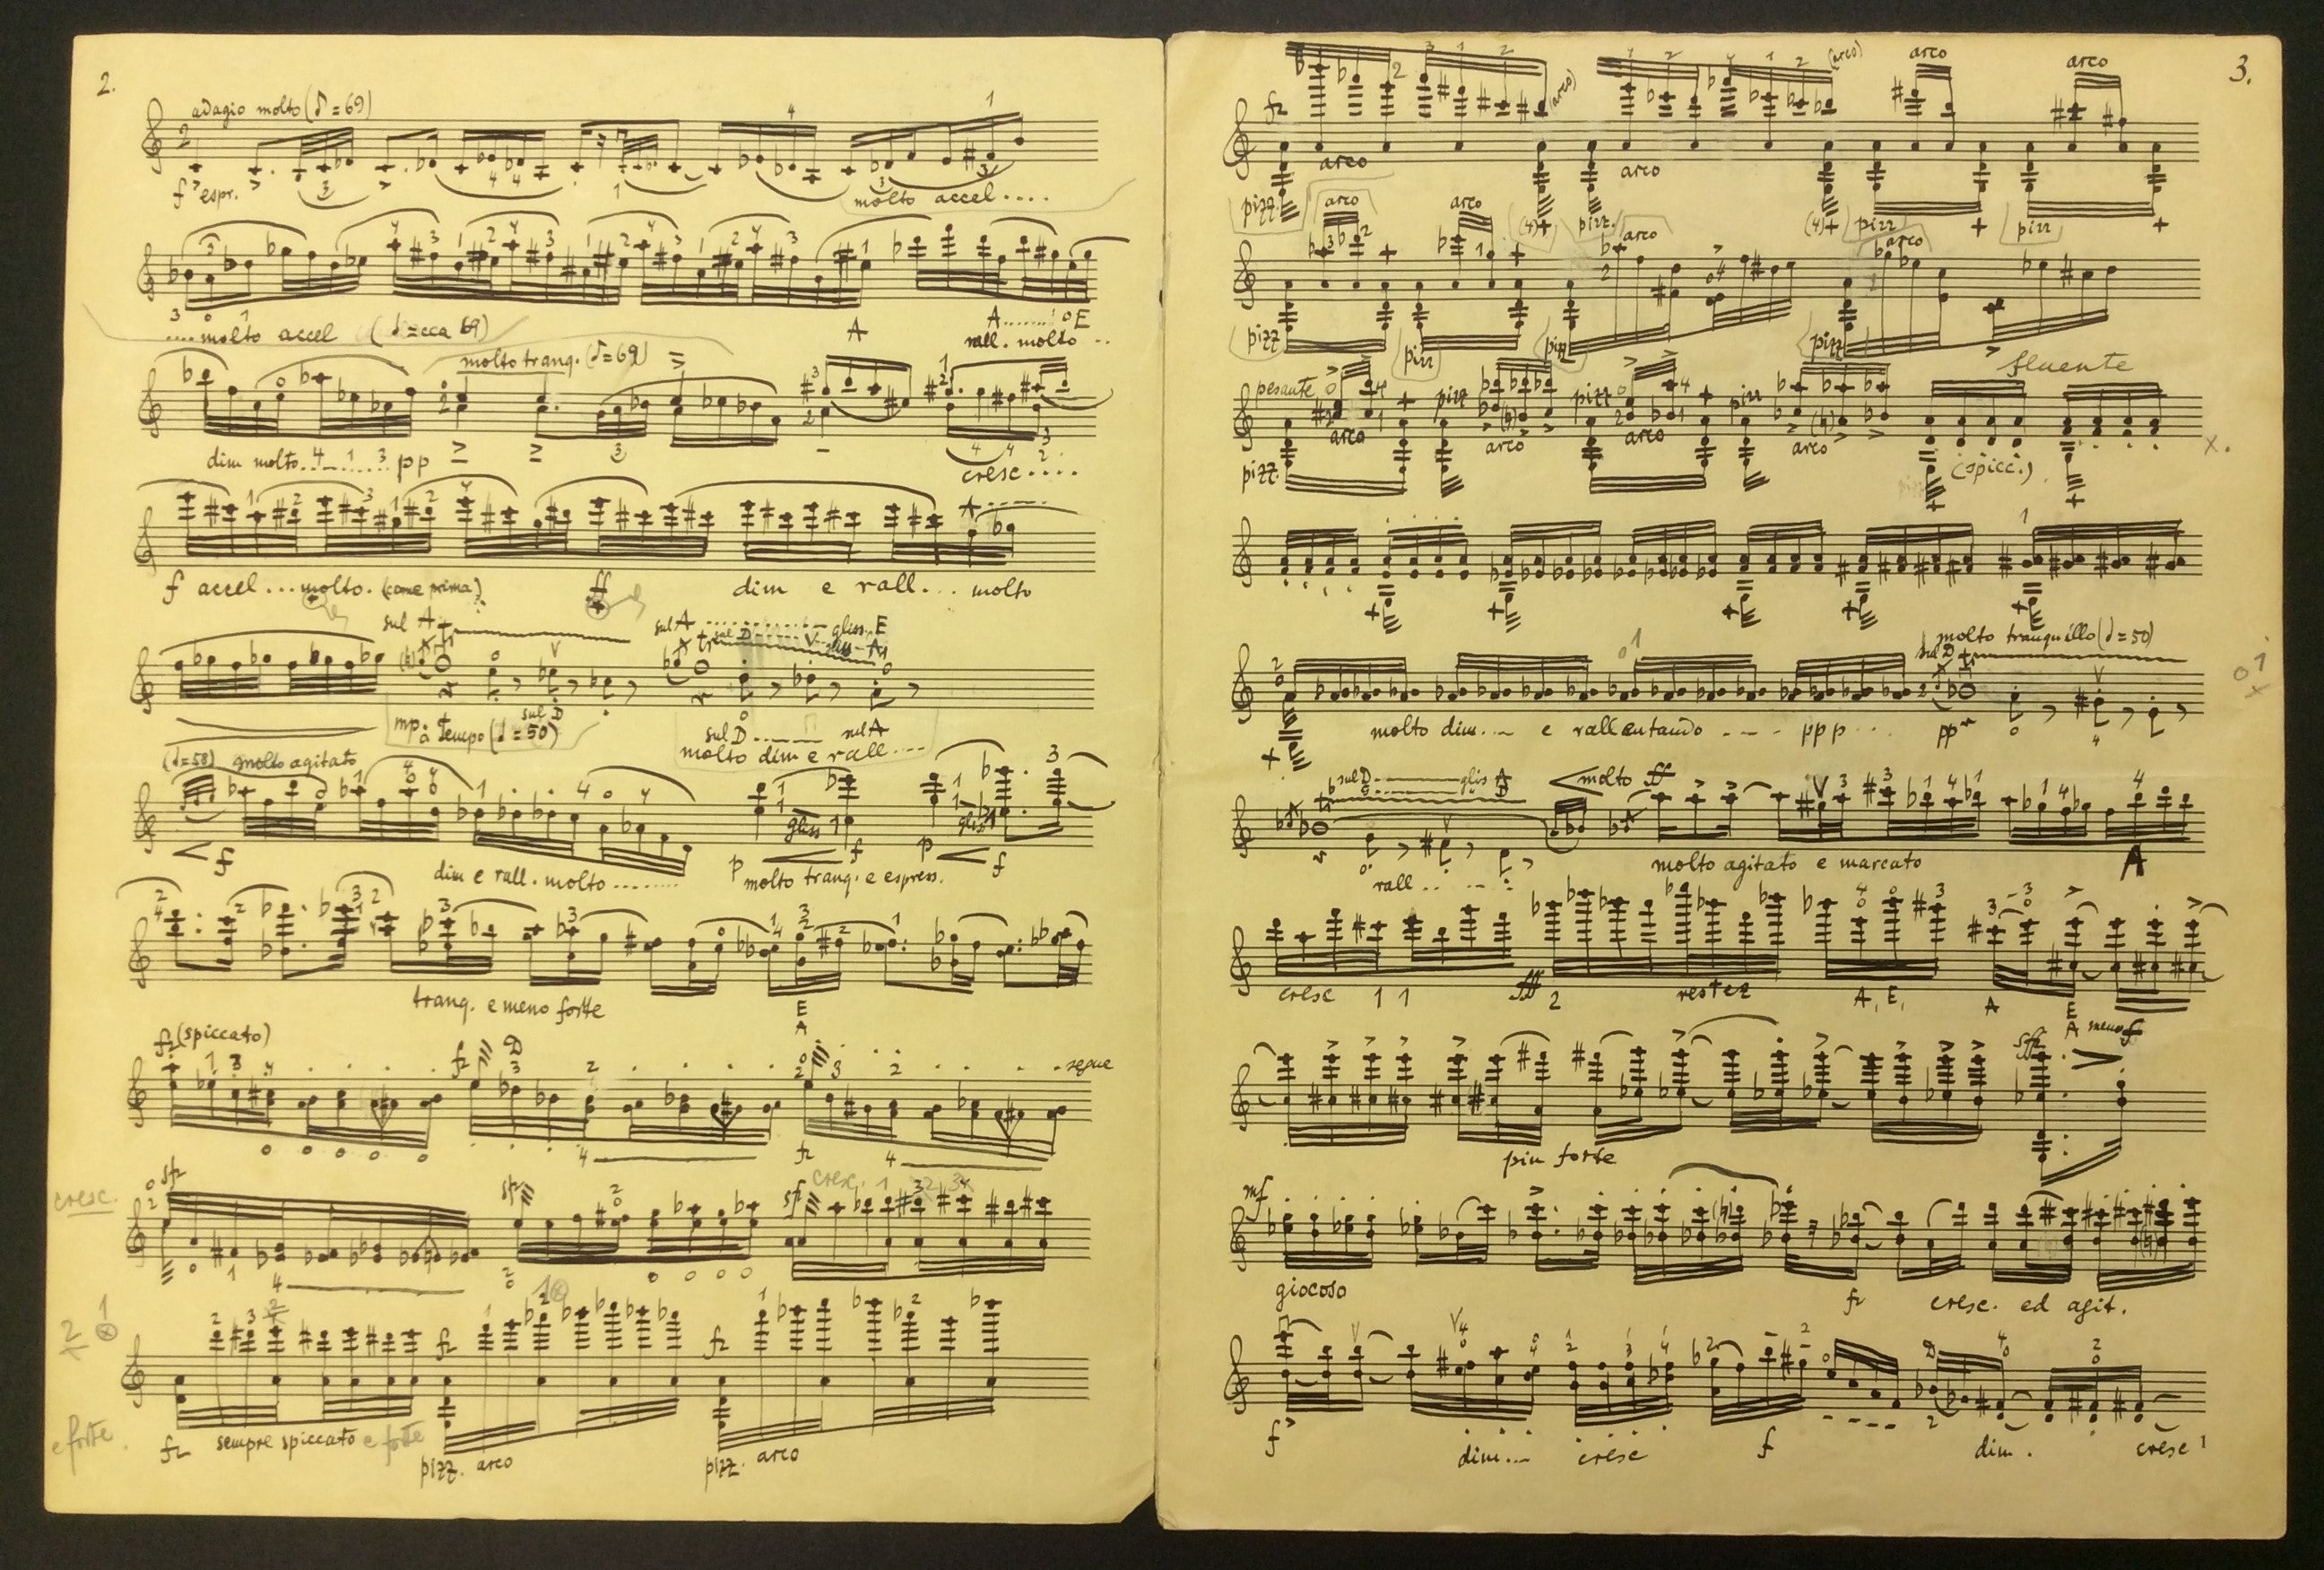 2.
adagio molto (♪=69)
f espr.
molto accel....
....molto accel (♩=cca 69)
A
A........ o E
rall. molto ..
molto tranq. (♪=69)
dim molto......... pp
cresc....
f accel...molto. (come prima)
ff
dim e rall... molto
A......
sul A
sul A ............ gliss. E
sul D ...... gliss - A
mp a tempo (♩=50)
sul D
sul D ........ sul A
molto dim e rall....
(♩=58) molto agitato
f
dim e rall. molto ........
gliss
gliss
p f
p f
molto tranq. e espress.
tranq. e meno forte
E
A
fz (spiccato)
fz
D
segue
fz
cresc.
sfz
sfz
sf
cresc.
fz
fz
e forte.
fz sempre spiccato e forte
pizz. arco
pizz. arco
3.
fz
(arco)
(arco)
arco
arco
arco
arco
pizz.
arco
arco
(4)+
pizz.
arco
(4)+
pizz
+
pizz
+
arco
pizz
pizz
pizz
pizz
fluente
pesante
arco
pizz
arco
pizz
arco
pizz
arco
pizz.
(spicc.)
x.
molto tranquillo (♩=50)
sul D
molto dim... e rallentando - - - ppp ...
pp
sul D ........ glis A
molto ff
rall .. - - -
molto agitato e marcato
A
cresc 1 1
fff 2
restez
A, E,
A
E
A
meno f
sffz
piu forte
mf
giocoso
fz
cresc. ed agit.
f
dim...
cresc
f
D
dim.
cresc